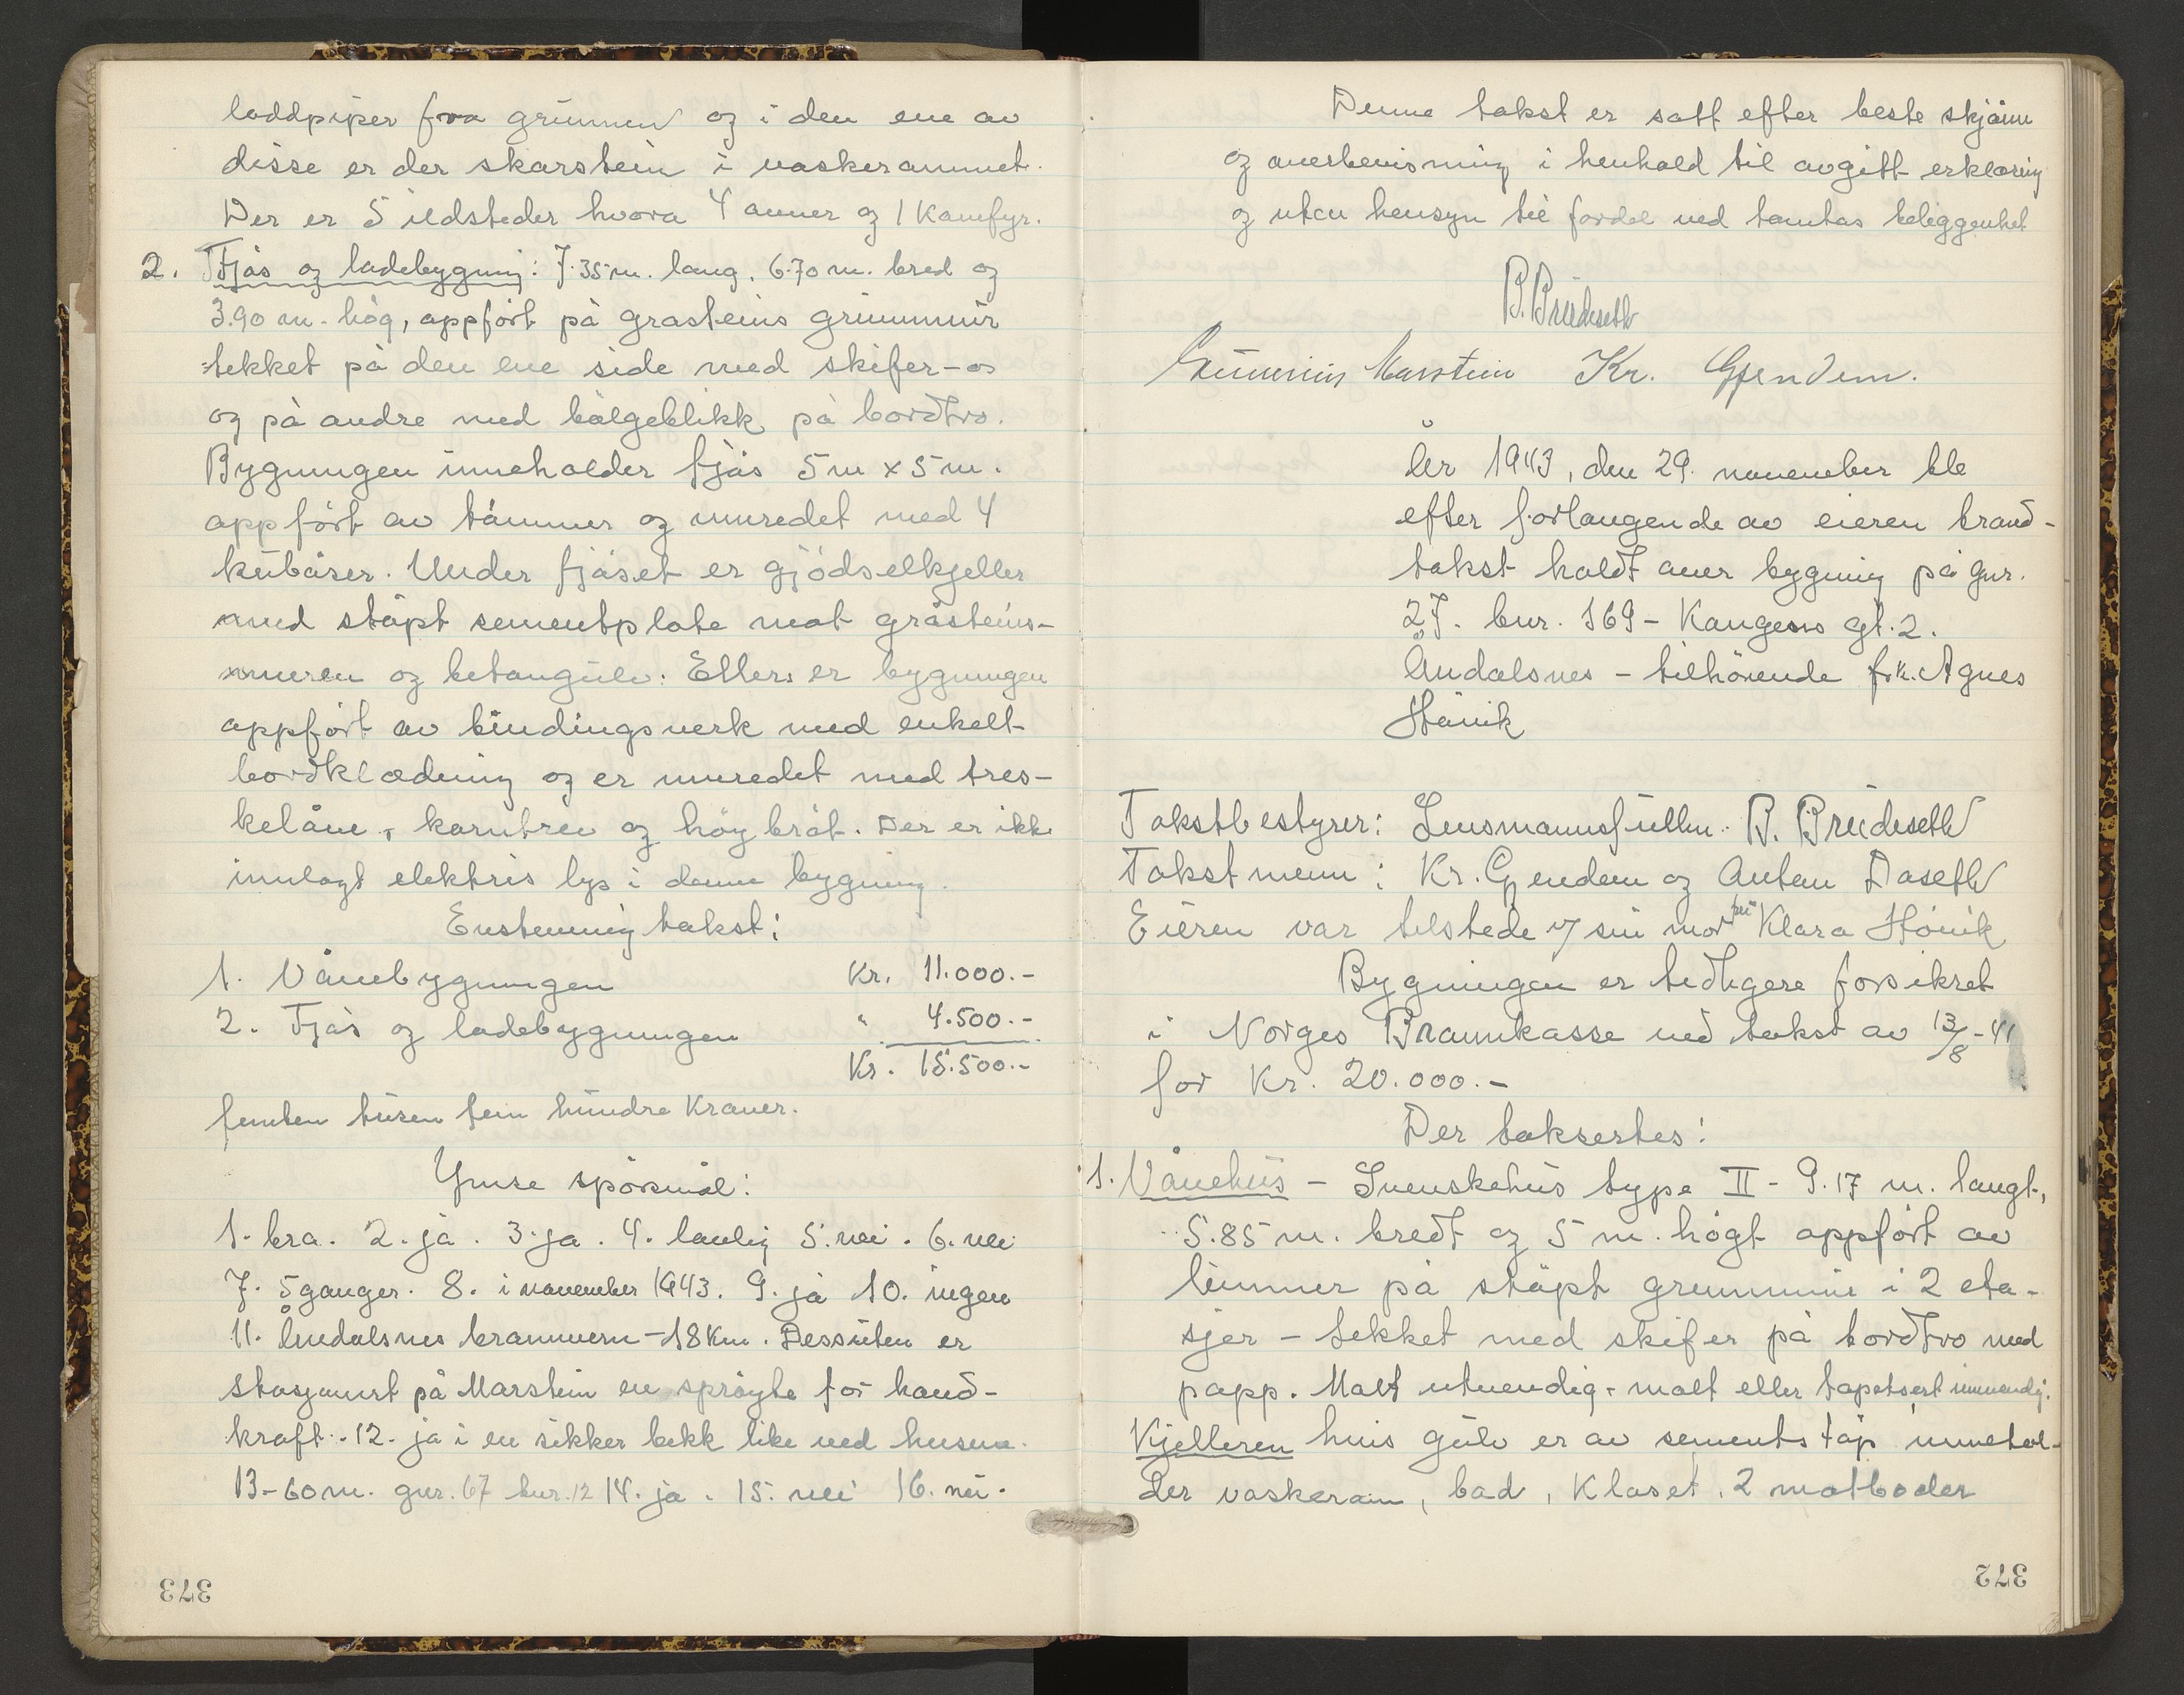 loddpiper fra grunnen og i den ene av
disse er der skarstein i vaskerommet.
Der er 5 ildsteder hvorav 4 ovner og 1 Komfyr.
2. Fjøs og ladebygning: 7.35 m. lang, 6.70 m. bred og
3.90 m. høg, oppført på grasteins grunnmur
tekket på den ene side med skifer-
og på andre med bølgeblikk på bordtro.
Bygningen inneholder fjøs 5 m x 5 m.
oppført av tømmer og innredet med 4
kubåser. Under fjøset er gjødselkjeller
med støpt sementplate mot gråsteins-
muren og betongulv. Ellers er bygningen
oppført av bindingsverk med enkelt
bordklædning og er innredet med tres-
kelåve, korntrev og høybrot. Der er ikke
innlagt elektris lys i denne bygning.
Enstemmig takst:
1. Vånebygningen Kr. 11.000.-
2. Fjøs og ladebygningen " 4.500.-
Kr. 15.500.-
femten tusen fem hundre Kroner.
Ymse spørsmål:
1. bra. 2. ja. 3. ja. 4. lovlig 5. nei. 6. nei
7. 5 ganger. 8. i november 1943. 9. ja 10. ingen
11. Åndalsnes brannvern - 18 Km. Dessuten er
stasjonert på Marstein en sprøyte for hand-
kraft. 12. ja i en sikker bekk like ved husene.
13 - 60 m. gnr. 67 bnr. 12 14. ja. 15. nei 16. nei.
373
Denne takst er satt efter beste skjønn
og overbevisning i henhold til avgitt erklæring
og uten hensyn til fordel ved tomtas beliggenhet
B. Brudeseth
Gunnerius Marstein Kr. Gjendem.
År 1943, den 29. november ble
efter forlangende av eieren brand-
takst holdt over bygning på gnr.
27. bnr. 169 - Kongens gt. 2.
Åndalsnes - tilhørende frk. Agnes
Hånik
Takstbestyrer: Lensmannsfullm. B. Brudeseth
Takstmenn: Kr. Gjendem og Anton Daseth
Eieren var tilstede v/ sin mor fru Klara Hånik
Bygningen er tidligere forsikret
i Norges Brannkasse ved takst av 13/8 - 41
for Kr. 20.000.-
Der taksertes:
1. Vånehus - Svenskehus type II - 9.17 m. langt,
5.85 m. bredt og 5 m. høgt oppført av
tømmer på støpt grunnmur i 2 eta-
sjer - tekket med skifer på bordtro med
papp. Malt utvendig - malt eller tapetsert innvendig.
Kjelleren hvis gulv er av sementstøp innehol-
der vaskerom, bad, Kloset, 2 matboder
372